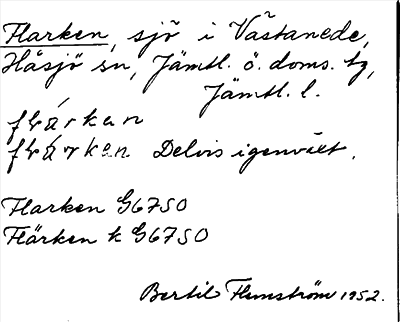 Flarken, sjö i Västanede,
Håsjö sn, Jämtl. ö. doms. tg,
Jämtl. l.
Delvis igenväxt.
Flarken G6750
Flärken k G6750
Bertil Flemström 1952.